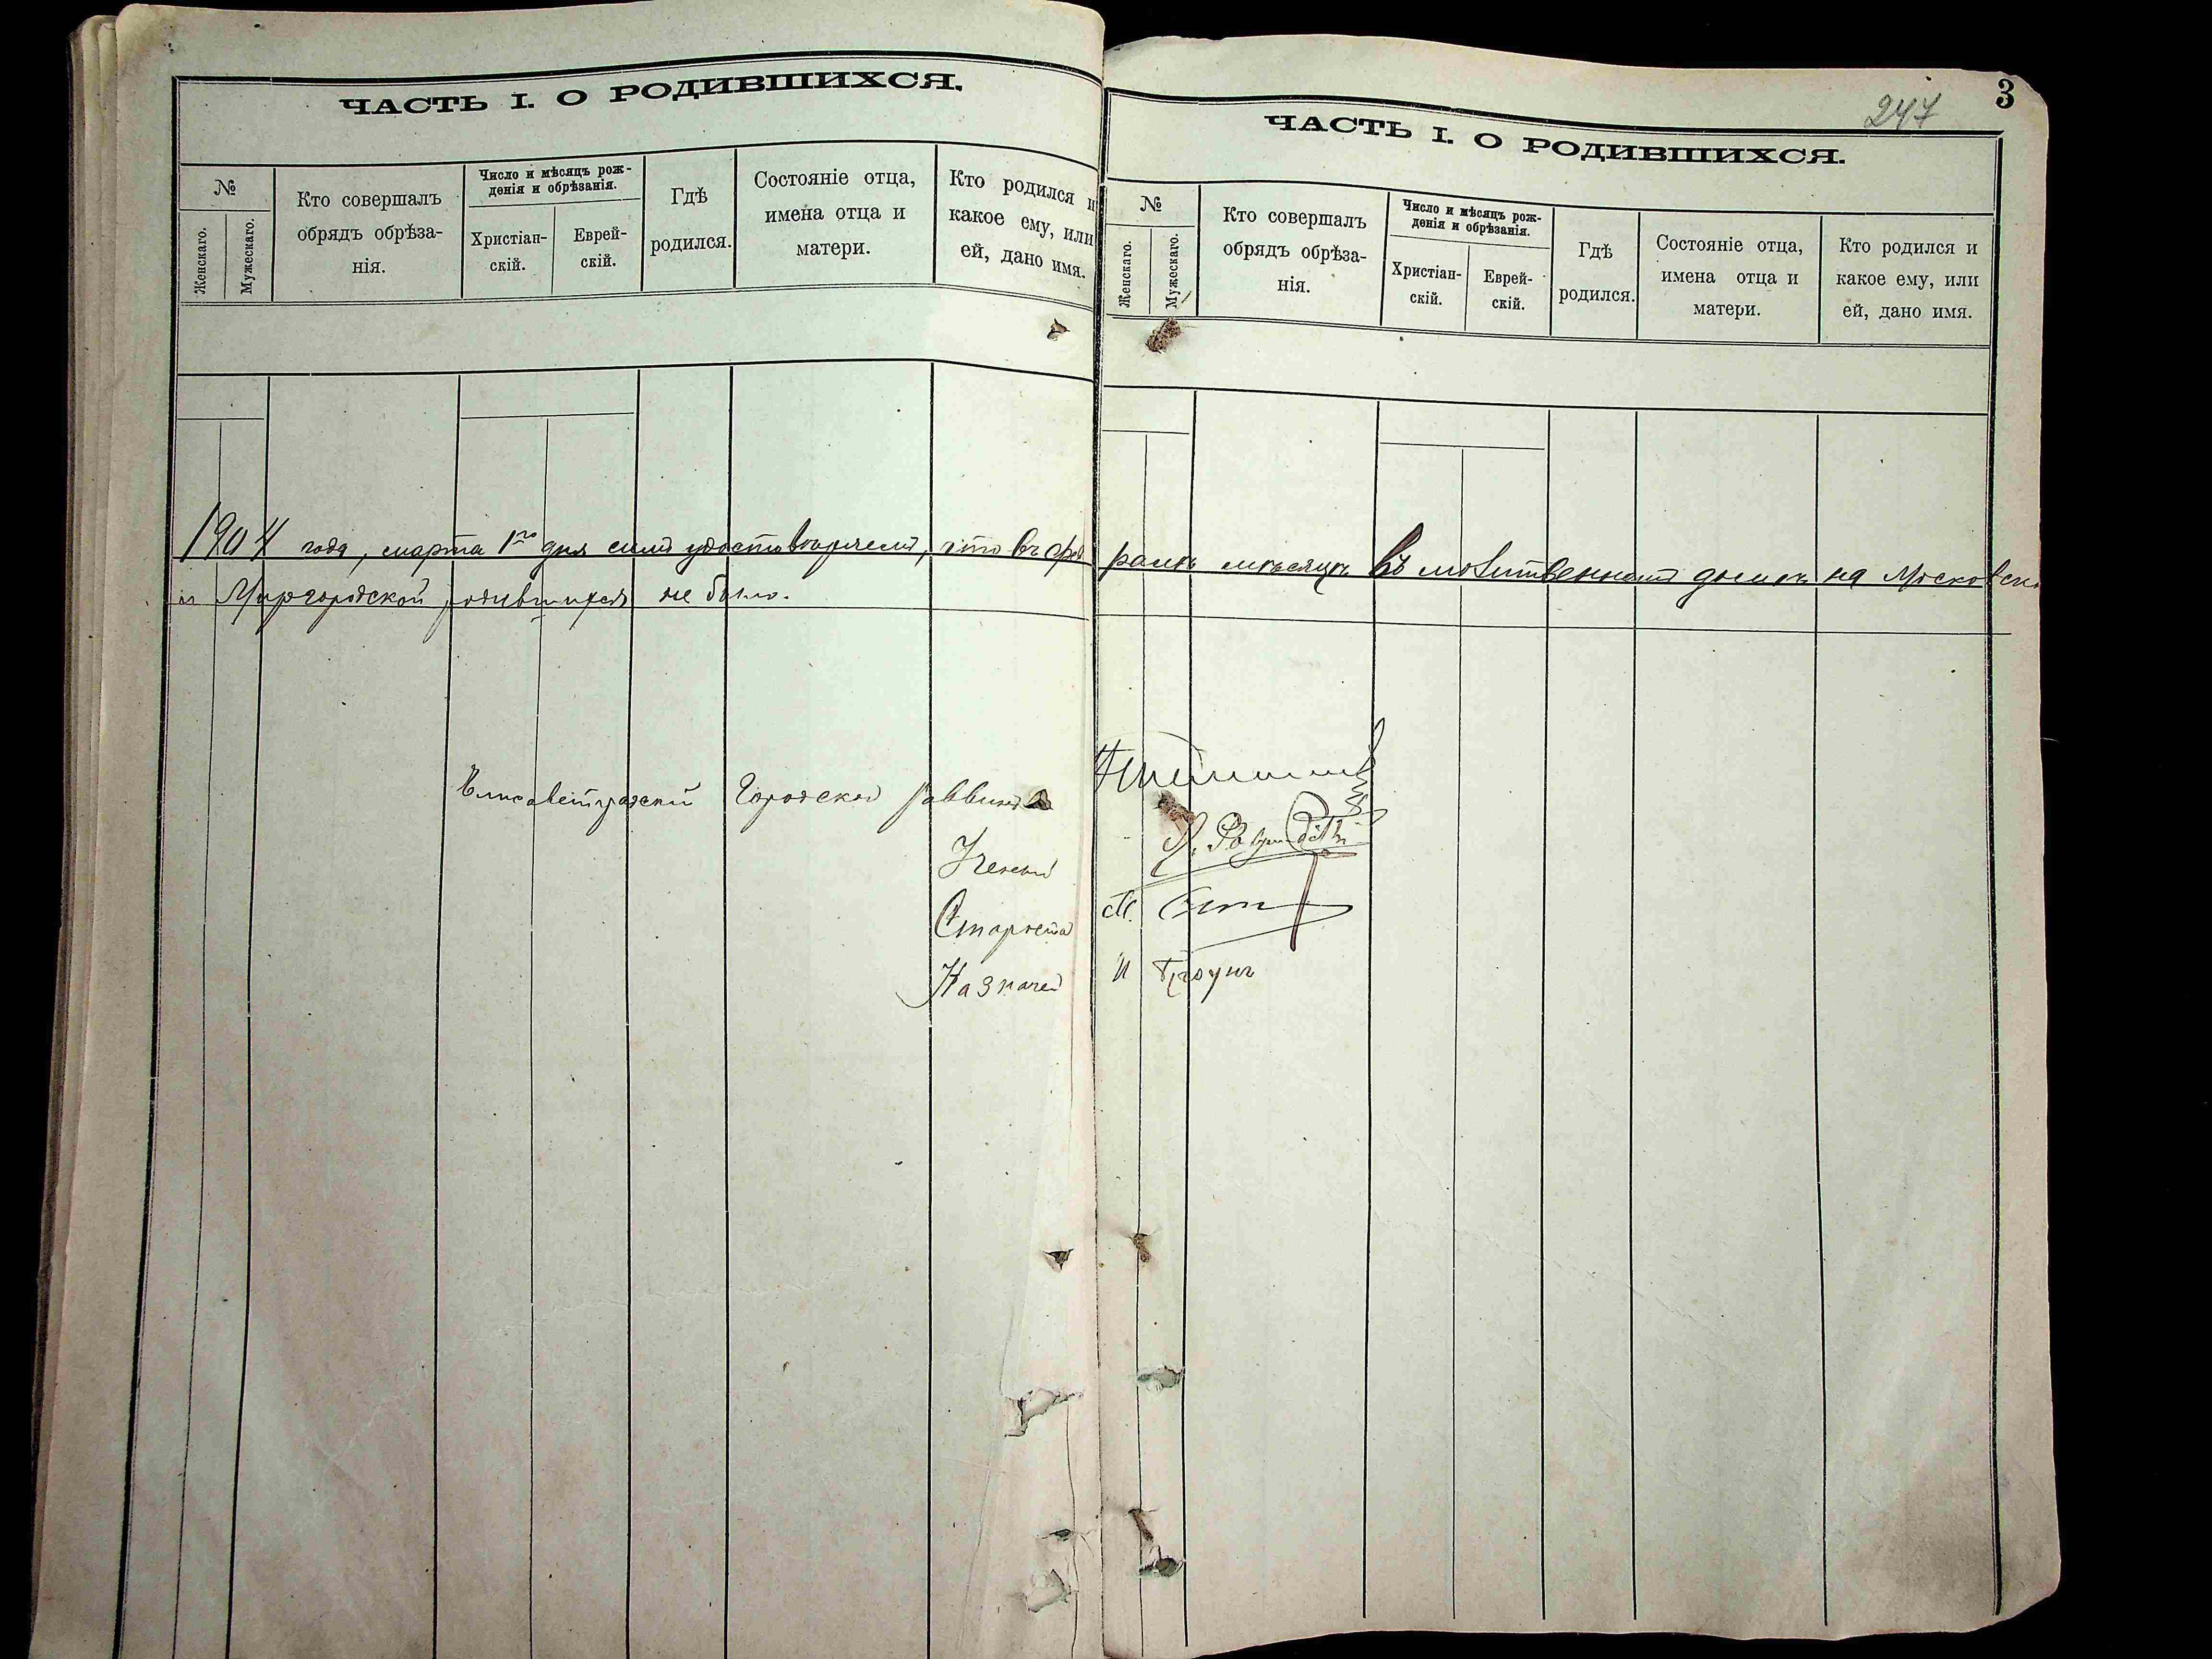 ЧАСТЬ I. О РОДИВШИХСЯ.
№
Женскаго.
Мужескаго.
Кто совершалъ
обрядъ обрѣза-
нія.
Число и мѣсяцъ рож-
денія и обрѣзанія.
Христіан-
скій.
Еврей-
скій.
Гдѣ
родился.
Состояніе отца,
имена отца и
матери.
Кто родился и
какое ему, или
ей, дано имя.
247
3
ЧАСТЬ I. О РОДИВШИХСЯ.
№
Женскаго.
Мужескаго.
Кто совершалъ
обрядъ обрѣза-
нія.
Число и мѣсяцъ рож-
денія и обрѣзанія.
Христіан-
скій.
Еврей-
скій.
Гдѣ
родился.
Состояніе отца,
имена отца и
матери.
Кто родился и
какое ему, или
ей, дано имя.
1904 года, марта 1го дня симъ удостовѣряемъ, что въ фев ралѣ мѣсяцѣ въ молитвенномъ домѣ на Московско
й Миргородской родившихся не было.
Елисаветградскій Городской Раввинъ
Ученый
Староста М.
Казначей И